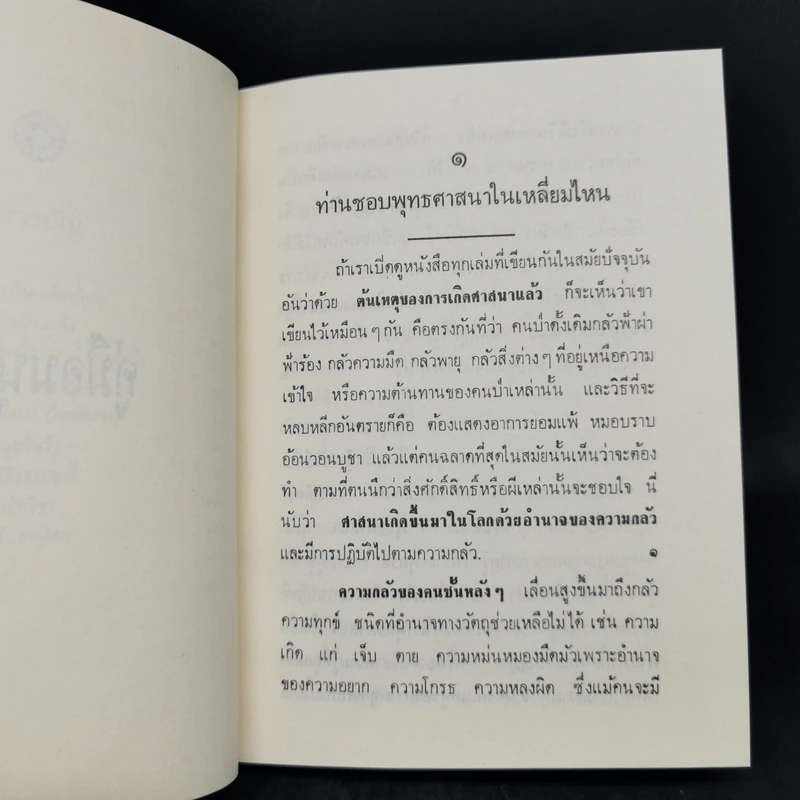 ๑
ท่านชอบพุทธศาสนาในเหลี่ยมไหน
ถ้าเราเปิดดูหนังสือทุกเล่มที่เขียนกันในสมัยปัจจุบัน
อันว่าด้วย ต้นเหตุของการเกิดศาสนาแล้ว ก็จะเห็นว่าเขา
เขียนไว้เหมือนๆกัน คือตรงกันที่ว่า คนป่าดั้งเดิมกลัวฟ้าผ่า
ฟ้าร้อง กลัวความมืด กลัวพายุ กลัวสิ่งต่างๆที่อยู่เหนือความ
เข้าใจ หรือความต้านทานของคนป่าเหล่านั้น และวิธีที่จะ
หลบหลีกอันตรายก็คือ ต้องแสดงอาการยอมแพ้ หมอบราบ
อ้อนวอนบูชา แล้วแต่คนฉลาดที่สุดในสมัยนั้นเห็นว่าจะต้อง
ทำ ตามที่ตนนึกว่าสิ่งศักดิ์สิทธิ์หรือผีเหล่านั้นจะชอบใจ นี่
นับว่า ศาสนาเกิดขึ้นมาในโลกด้วยอำนาจของความกลัว
และมีการปฏิบัติไปตามความกลัว. ๑
ความกลัวของคนชั้นหลังๆ เลื่อนสูงขึ้นมาถึงกลัว
ความทุกข์ ชนิดที่อำนาจทางวัตถุช่วยเหลือไม่ได้ เช่น ความ
เกิด แก่ เจ็บ ตาย ความหม่นหมองมืดมัวเพราะอำนาจ
ของความอยาก ความโกรธ ความหลงผิด ซึ่งแม้คนจะมี